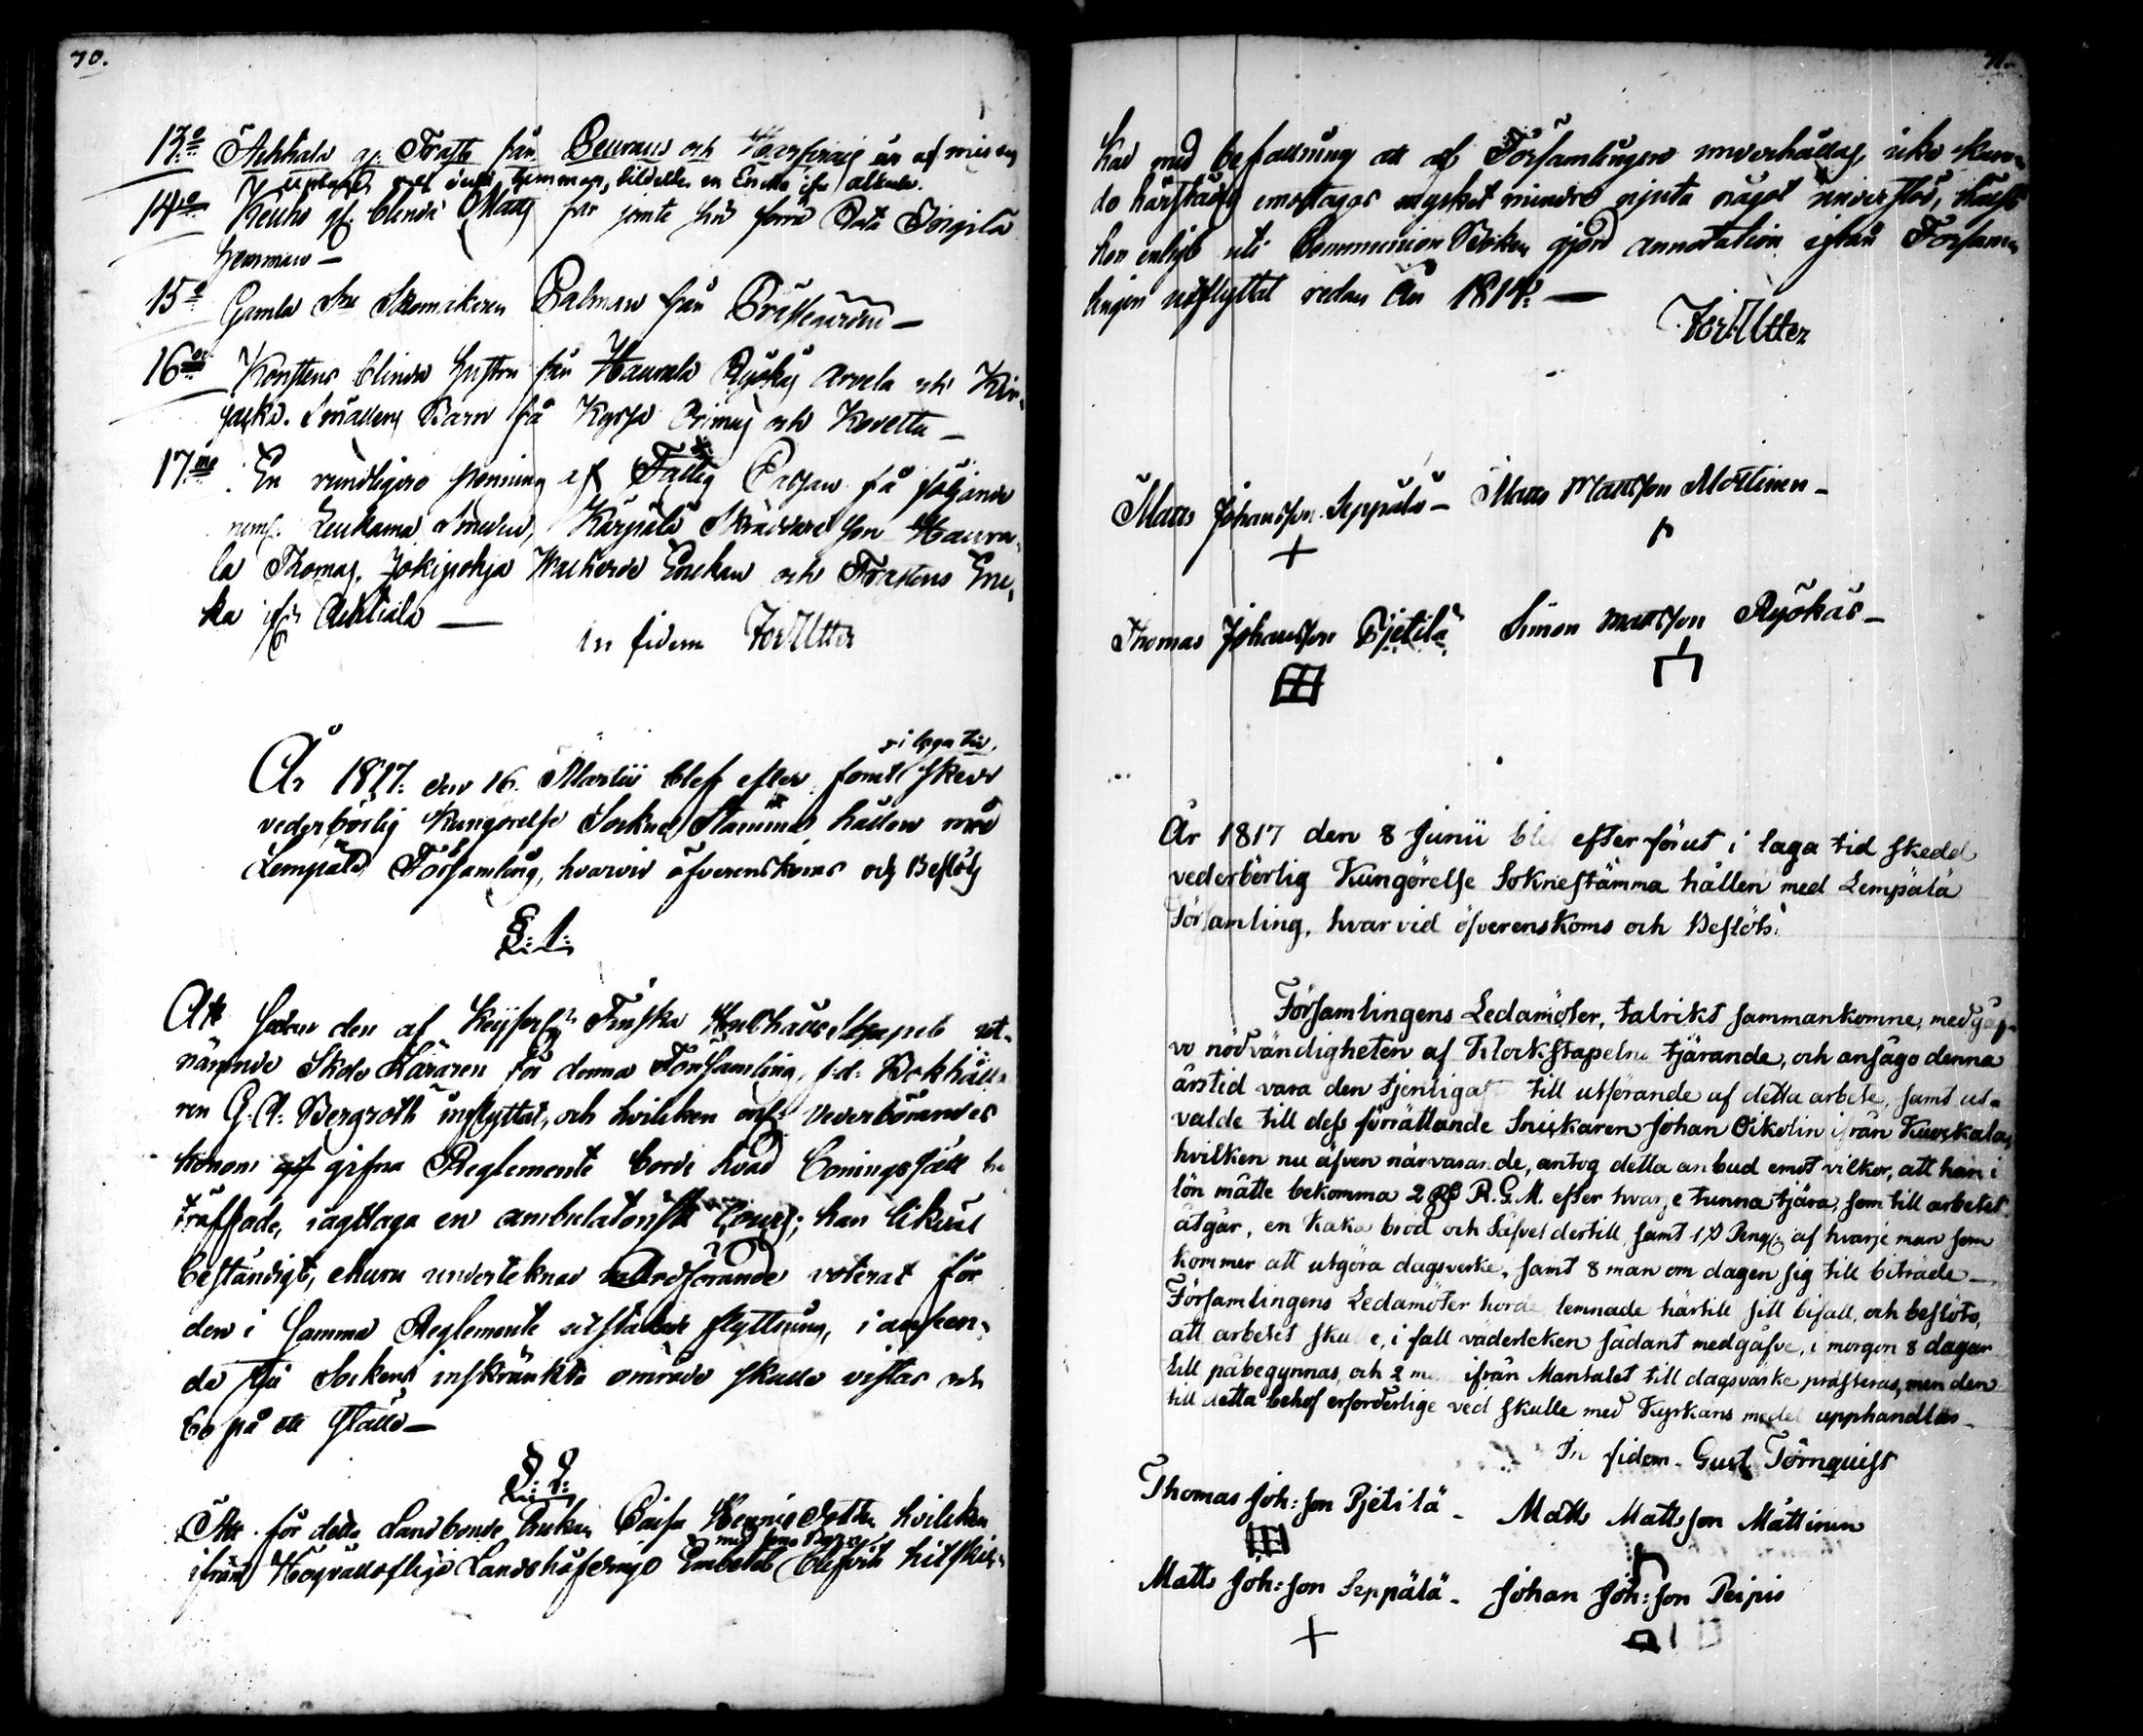 70.
13:o Ahtiala gl. Trasts från och är af
14:o Keuho gl. blinda Matts får jemte sin förra Rota Sorgila
hemman —
15:o Gamla Palman från Prästgården —
16:o Konstens blinda hustru från Haurala Ryökäs Arvela och Kir-
jaska. Smällens Barn på och Kovetta —
17:me En penning af Fattig Cassan få följande
neml. Leukama Smeden, Kärpälä Skräddare son Haura-
la Thomas, Jokipohja Enckan och Trastens Enc-
ka ifr: Ahtiala —
In fidem Jos Utter
År 1817. den 16. Martii blef efter förut i laga tid skedd
vederbörlig Kungörelse Sockne Stämma hållen med
Lempälä Församling, hvarvid öfverenskoms och Beslöts
§. 1.
Att sedan den af Keyserl: Finska Hushålls Skapet ut-
nämnde Skole Läraren för denna Församling, f.d. Bokhålla-
ren G. A. Bergroth inflyttat, och hvilken enl: vederbörandes
honom gifna Reglemente borde hvad Boningsställ
träffade, iagttaga en ambulatorisk Cours; han likväl
beständigt, ehuru undertecknad Ordförande voterat för
den i samma Reglemente utstakade flyttning, i anseen-
de till Sockens inskränkta område skulle vistas och
bo på ett ställe —
§. 2.
Att för detta Landbonde Enckan Caisa Henrics Dotter hvilcken
ifrån Högvälloflige Landshöfdinge Embetet med sina Barn blifvit hitskic-
71.
kad med befallning att af Församlingen underhållas, icke kun-
de härstädes emottagas mycket mindre njuta något understöd, hälst
hon enligt uti Communion Boken gjord annotation ifrån Försam-
lingen utflyttat redan År 1814. —
Jos Utter
Matts Johansson Seppälä — Matts Mattsson Mattinen —
Thomas Johansson Pjetilä Simon Mattsson Ryökäs —
År 1817 den 8 Junii blef efter förut i laga tid skedd
vederbörlig Kungörelse Soknestämma hållen med Lempälä
Församling, hvarvid öfverenskoms och Beslöts:
Församlingens Ledamöter, talrikt sammankomne, medgåf-
vo nödvändigheten af Klockstapelns tjärande, och ansågo denna
årstid vara den tjenligaste till utförande af detta arbete, samt ut-
valde till dess förrättande Snickaren Johan Oikolin ifrån Kuoskala,
hvilken nu äfven närvarande, antog detta anbud emot vilkor, att han i
lön måtte bekomma 2 R. G. M. efter hvarje tunna tjära, som till arbetet
åtgår, en kaka bröd och Säfvel dertill samt af hvarje man som
kommer att utgöra dagsverke, samt 8 man om dagen sig till biträde —
Församlingens Ledamöter lemnade härtill sitt bifall, och beslöts,
att arbetet skulle, i fall väderleken sådant medgåfve, i morgon 8 dagar
till påbegynnas, och 2 ifrån Mantalet till dagsvärke præsteras, men den
till detta behof erforderlige ved skulle med Kyrkans medel upphandlas —
In fidem. Gust Törnquist
Thomas Joh:son Pjetilä — Matts Mattsson Mattinen
Matts Joh:son Seppälä — Johan Joh:son Peipis